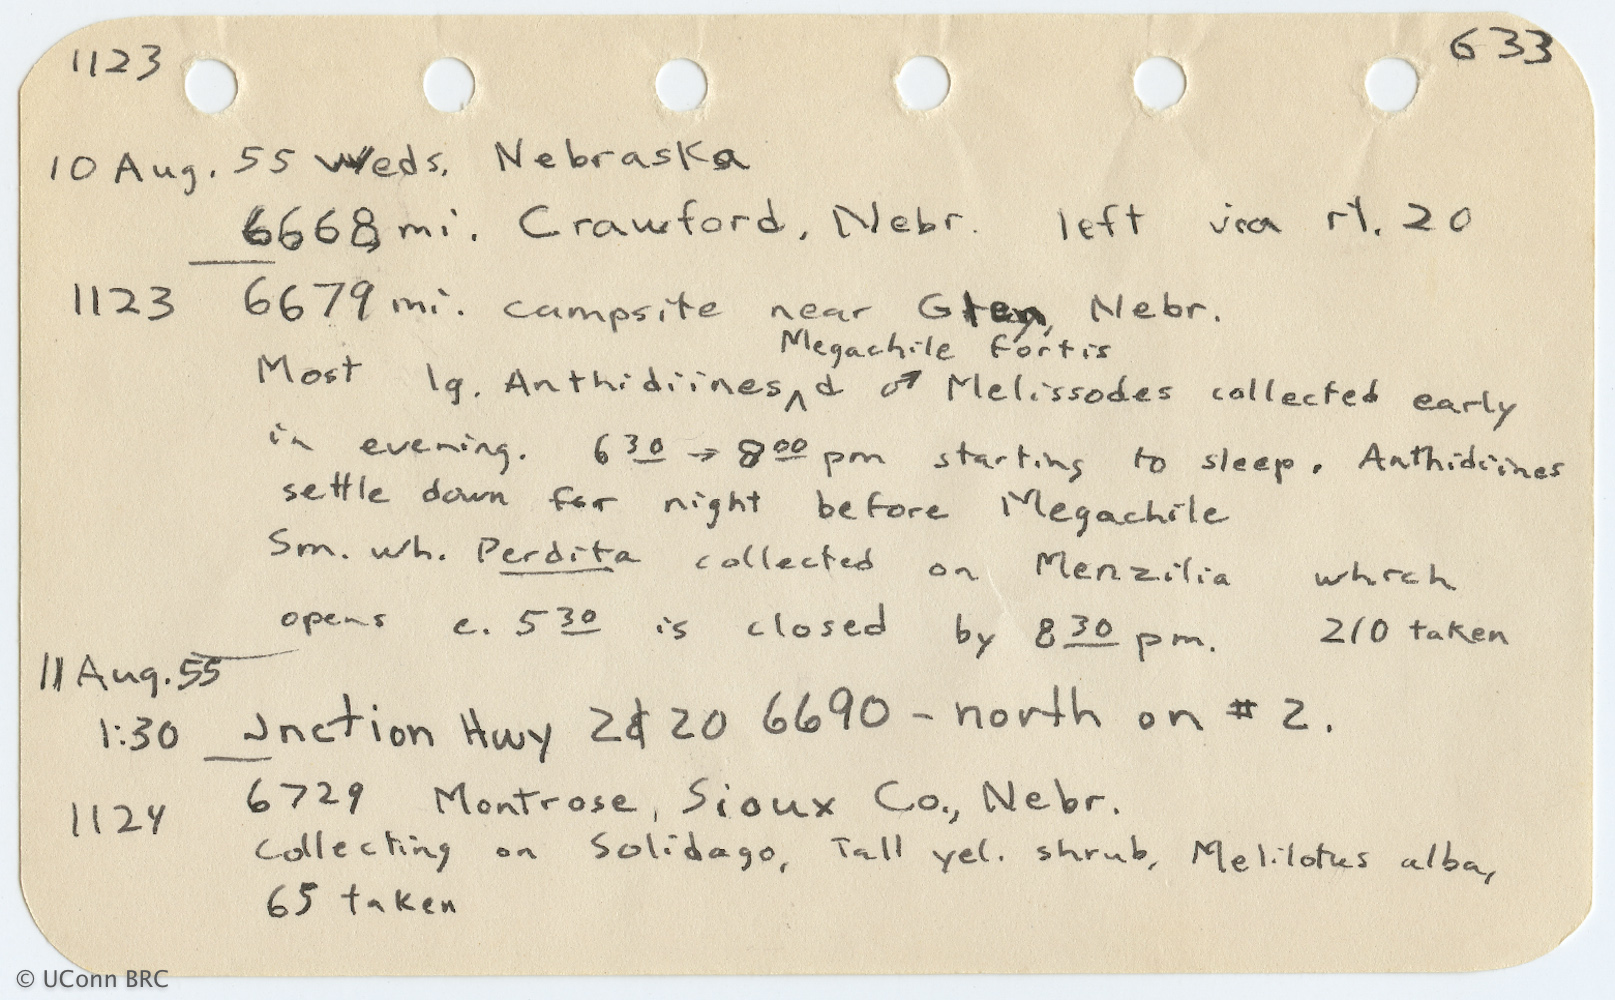 1123 633
10 Aug. 55 Weds. Nebraska
6668 mi. Crawford, Nebr. left via rt. 20
1123 6679 mi. campsite near Glen, Nebr.
Megachile fortis
Most lg. Anthidiines ^ & ♂ Melissodes collected early
in evening. 6 30 → 8 00 pm starting to sleep. Anthidiines
settle down for night before Megachile
Sm. wh. Perdita collected on Menzilia which
opens c. 5 30 is closed by 8 30 pm. 210 taken
11 Aug. 55
1:30 Jnction Hwy 2 & 20 6690 - north on # 2.
1124 6729 Montrose, Sioux Co., Nebr.
Collecting on Solidago, Tall yel. shrub, Melilotus alba,
65 taken
© UConn BRC